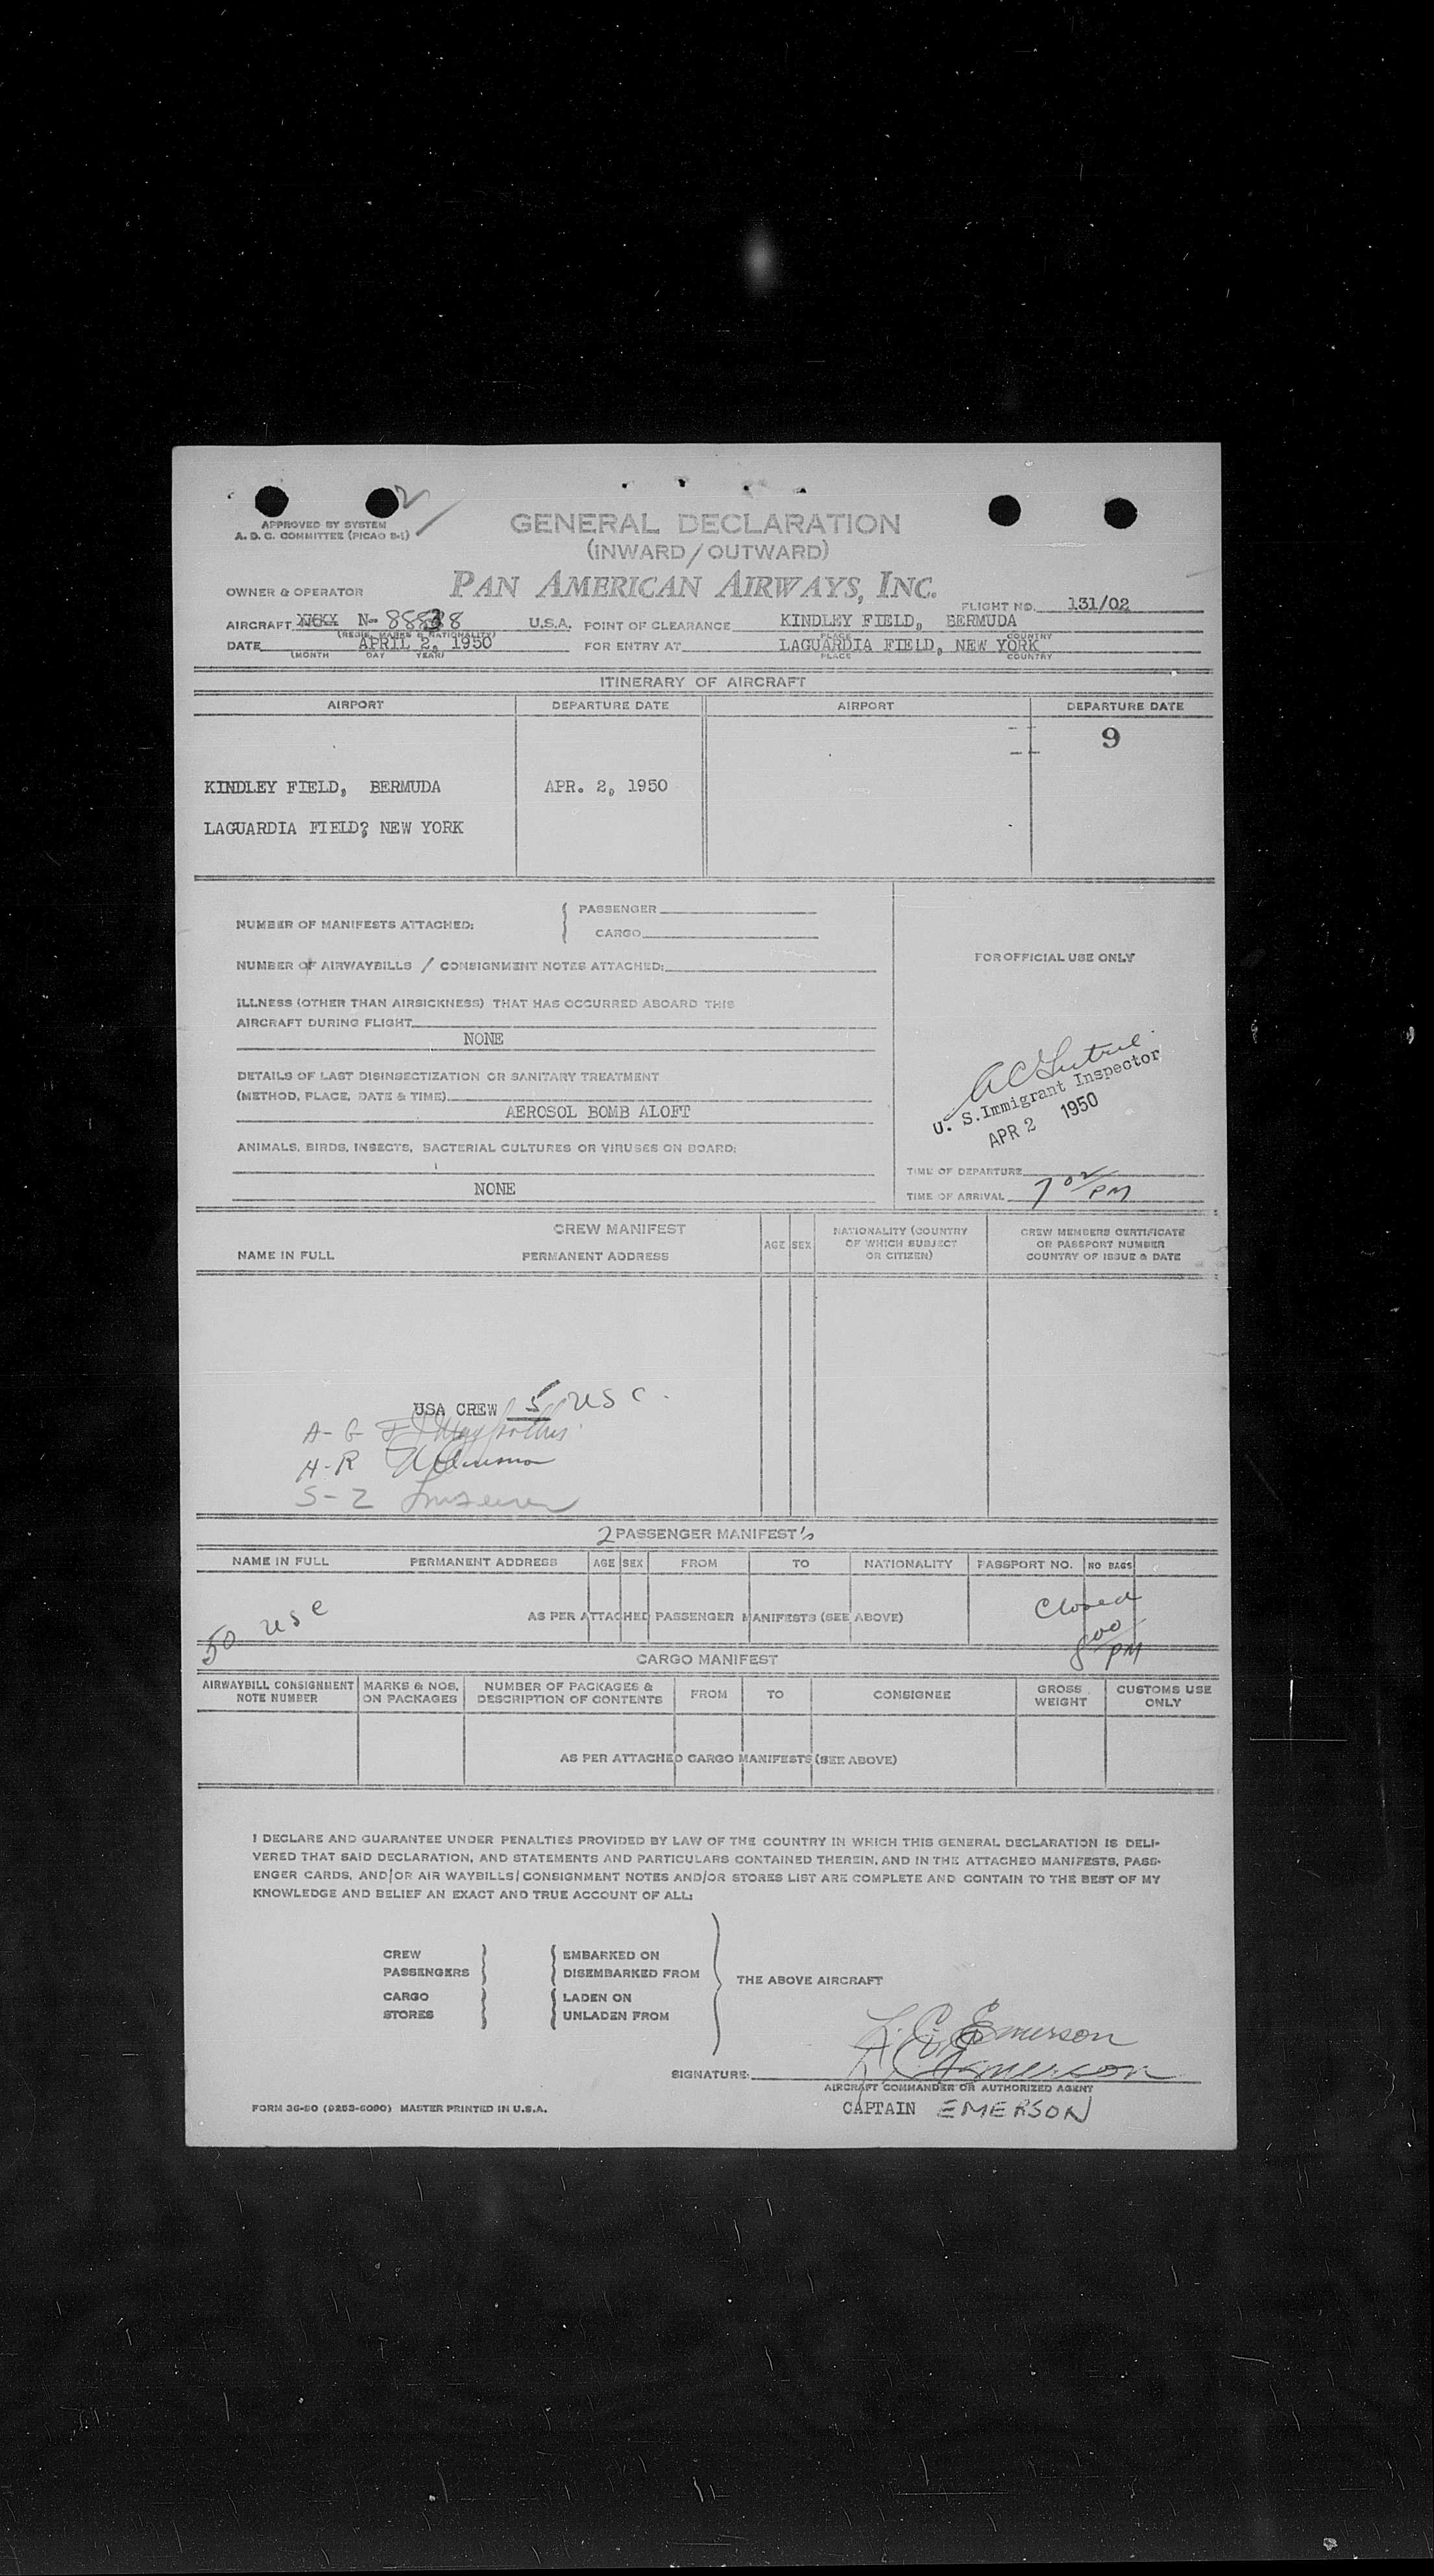 2
APPROVED BY SYSTEM
A. D. C. COMMITTEE (PICAO B-1)
GENERAL DECLARATION
(INWARD/OUTWARD)
OWNER & OPERATOR PAN AMERICAN AIRWAYS, INC.
FLIGHT NO. 131/02
AIRCRAFT N-88838 U.S.A. POINT OF CLEARANCE KINDLEY FIELD, BERMUDA
(REGIS. MARKS & NATIONALITY) PLACE COUNTRY
DATE APRIL 2, 1950 FOR ENTRY AT LAGUARDIA FIELD, NEW YORK
(MONTH DAY YEAR) PLACE COUNTRY
ITINERARY OF AIRCRAFT
AIRPORT DEPARTURE DATE AIRPORT DEPARTURE DATE
9
KINDLEY FIELD, BERMUDA APR. 2, 1950
LAGUARDIA FIELD? NEW YORK
NUMBER OF MANIFESTS ATTACHED: { PASSENGER
CARGO
NUMBER OF AIRWAYBILLS / CONSIGNMENT NOTES ATTACHED:
FOR OFFICIAL USE ONLY
ILLNESS (OTHER THAN AIRSICKNESS) THAT HAS OCCURRED ABOARD THIS
AIRCRAFT DURING FLIGHT
NONE
DETAILS OF LAST DISINSECTIZATION OR SANITARY TREATMENT
(METHOD, PLACE, DATE & TIME)
AEROSOL BOMB ALOFT
U. S. Immigrant Inspector
APR 2 1950
ANIMALS, BIRDS, INSECTS, BACTERIAL CULTURES OR VIRUSES ON BOARD:
NONE
TIME OF DEPARTURE
TIME OF ARRIVAL 7 02 PM
CREW MANIFEST
NAME IN FULL PERMANENT ADDRESS AGE SEX NATIONALITY (COUNTRY OF WHICH SUBJECT OR CITIZEN) CREW MEMBERS CERTIFICATE OR PASSPORT NUMBER COUNTRY OF ISSUE & DATE
USA CREW 5 USC
A-G
H-R
S-Z
2 PASSENGER MANIFEST's
NAME IN FULL PERMANENT ADDRESS AGE SEX FROM TO NATIONALITY PASSPORT NO. NO BAGS
50 USC AS PER ATTACHED PASSENGER MANIFESTS (SEE ABOVE) Closed
800 PM
CARGO MANIFEST
AIRWAYBILL CONSIGNMENT NOTE NUMBER MARKS & NOS. ON PACKAGES NUMBER OF PACKAGES & DESCRIPTION OF CONTENTS FROM TO CONSIGNEE GROSS WEIGHT CUSTOMS USE ONLY
AS PER ATTACHED CARGO MANIFESTS (SEE ABOVE)
I DECLARE AND GUARANTEE UNDER PENALTIES PROVIDED BY LAW OF THE COUNTRY IN WHICH THIS GENERAL DECLARATION IS DELI-
VERED THAT SAID DECLARATION, AND STATEMENTS AND PARTICULARS CONTAINED THEREIN, AND IN THE ATTACHED MANIFESTS, PASS-
ENGER CARDS, AND/OR AIR WAYBILLS/CONSIGNMENT NOTES AND/OR STORES LIST ARE COMPLETE AND CONTAIN TO THE BEST OF MY
KNOWLEDGE AND BELIEF AN EXACT AND TRUE ACCOUNT OF ALL:
CREW EMBARKED ON
PASSENGERS DISEMBARKED FROM
THE ABOVE AIRCRAFT
CARGO LADEN ON
STORES UNLADEN FROM
L. C. Emerson
SIGNATURE: L. C. Emerson
AIRCRAFT COMMANDER OR AUTHORIZED AGENT
CAPTAIN EMERSON
FORM 36-50 (9253-6090) MASTER PRINTED IN U.S.A.